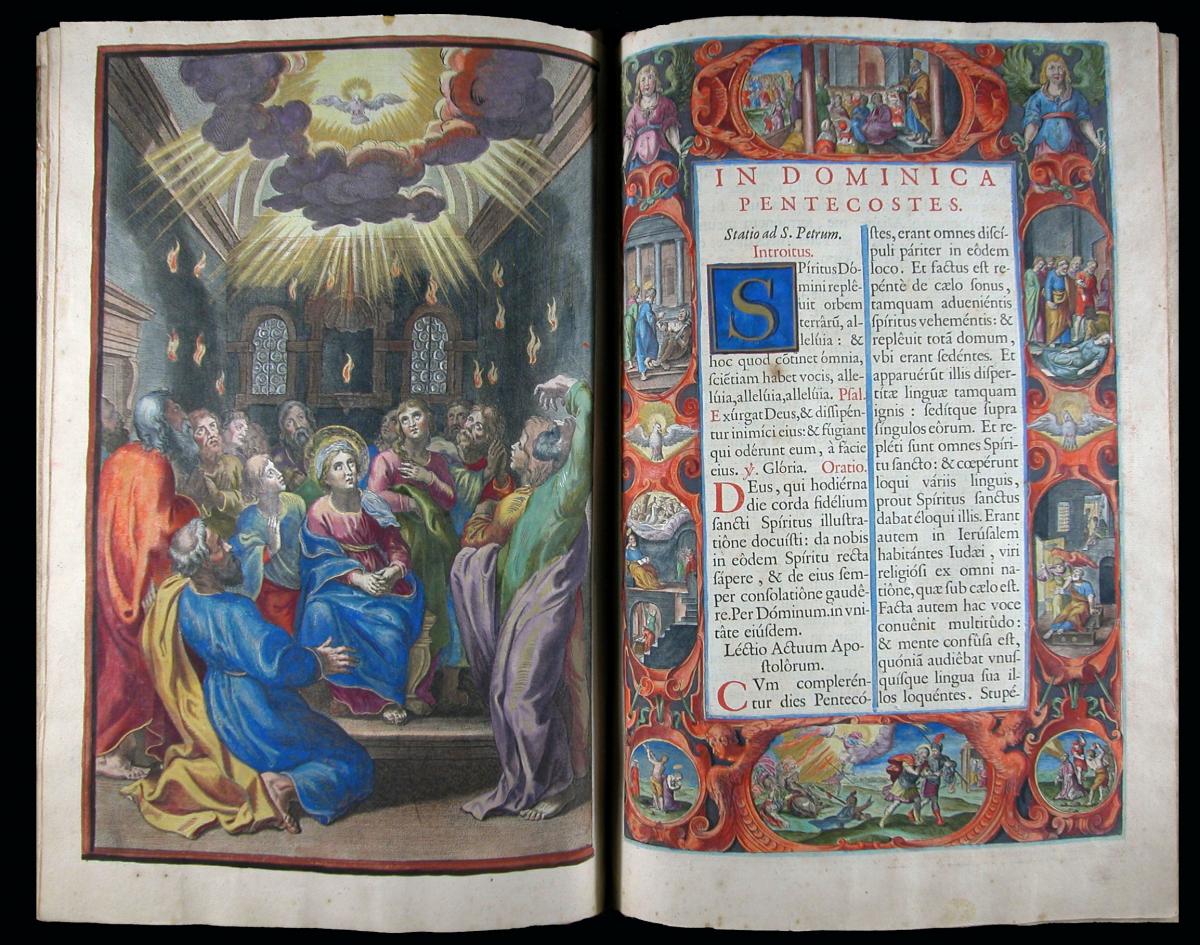 IN DOMINICA
PENTECOSTES.
Statio ad S. Petrum.
Introitus.
SPíritus Dó-
mini replê-
uit orbem
terrârũ, al-
lelúia : &
hoc quod cõtinet ómnia,
ſciẽtiam habet vocis, alle-
lúia, allelúia, allelúia. Pſal.
Exúrgat Deus, & diſſipén-
tur inimíci eius: & fugiant
qui odérunt eum, à facie
eius. ℣. Glória. Oratio.
DEus, qui hodiérna
die corda fidélium
ſancti Spíritus illuſtra-
tiône docuíſti: da nobis
in eôdem Spíritu recta
ſápere, & de eius ſem-
per conſolatiône gaudê-
re. Per Dóminum. in vni-
tâte eiúſdem.
Léctio Actuum Apo-
ſtolôrum.
CVm complerén-
tur dies Pentecó-
ſtes, erant omnes diſcí-
puli páriter in eôdem
loco. Et factus eſt re-
pénte de cælo ſonus,
tamquam adueniéntis
ſpíritus veheméntis: &
repléuit totã domum,
vbi erant ſedéntes. Et
apparuérũt illis diſper-
titæ linguæ tamquam
ignis : ſedítque ſupra
ſíngulos eôrum. Et re-
pléti ſunt omnes Spíri-
tu ſancto: & cœpérunt
loqui váriis linguis,
prout Spíritus ſanctus
dabat éloqui illis. Erant
autem in Ierúſalem
habitántes Iudæi, viri
religióſi ex omni na-
tiône, quæ ſub cælo eſt.
Facta autem hac voce
conuênit multitúdo:
& mente confúſa eſt,
quóniã audiêbat vnuſ-
quíſque lingua ſua il-
los loquéntes. Stupé-